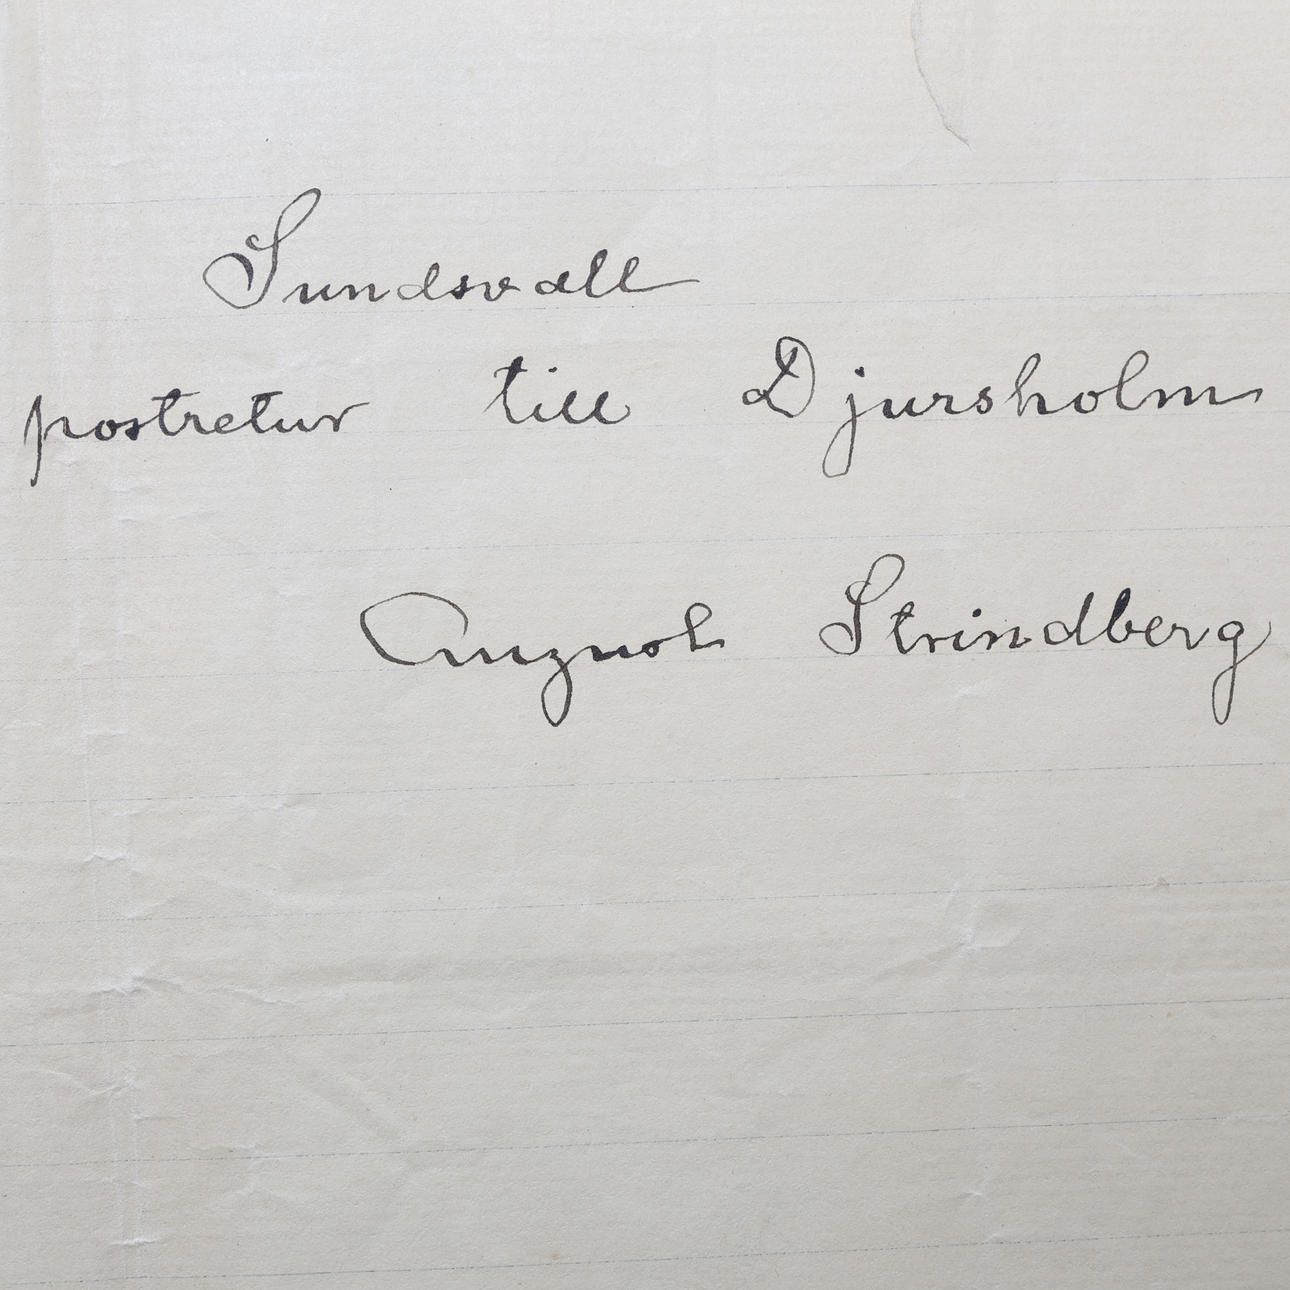 Sundsvall
postretur till Djursholm
August Strindberg